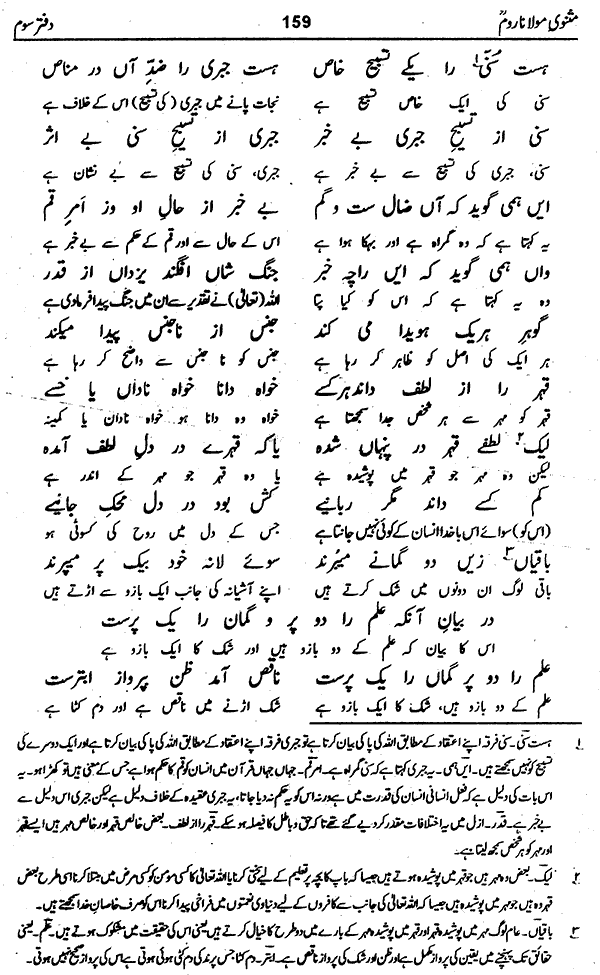 مثنوی مولانا روم ؒ 159 دفتر سوم
ہست سُنّی را یکے تسبیح خاص ہست جبری را ضدِّ آں در مناص
سنی کی ایک خاص تسبیح ہے نجات پانے میں جبری (کی تسبیح) اس کے خلاف ہے
سنی از تسبیحِ جبری بے خبر جبری از تسبیحِ سنی بے اثر
سنی، جبری کی تسبیح سے بے خبر ہے جبری، سنی کی تسبیح سے بے نشان ہے
ایں ہمی گوید کہ آں ضال ست و گم بے خبر از حالِ او وز امرِ قم
یہ کہتا ہے کہ وہ گمراہ ہے اور بہکا ہوا ہے اس کے حال سے اور قم کے حکم سے بے خبر ہے
واں ہمی گوید کہ ایں راچہ خبر جنگ شاں افگند یزداں از قدر
وہ یہ کہتا ہے کہ اس کو کیا پتا اللہ (تعالیٰ) نے تقدیر سے ان میں جنگ پیدا فرما دی ہے
گوہرِ ہریک ہویدا می کند جنس از ناجنس پیدا میکند
ہر ایک کی اصل کو ظاہر کر رہا ہے جنس کو نا جنس سے واضح کر رہا ہے
قہر را از لطف داند ہرکسے خواہ دانا خواہ ناداں یا خسے
قہر کو مہر سے ہر شخص جدا سمجھتا ہے خواہ وہ دانا ہو خواہ نادان یا کمینہ
لیک۲ لطفے قہر در پنہاں شدہ یا کہ قہرے در دلِ لطف آمدہ
لیکن وہ مہر جو قہر میں پوشیدہ ہے یا وہ قہر جو مہر کے اندر ہے
کم کسے داند مگر ربانیے کش بود در دل محکِ جانیے
(اس کو) سوائے اس باخدا انسان کے کوئی نہیں جانتا ہے جس کے دل میں روح کی کسوٹی ہو
باقیاں۳ زیں دو گمانے میبرند سوئے لانہ خود بیک پر میپرند
باقی لوگ ان دونوں میں شک کرتے ہیں اپنے آشیانہ کی جانب ایک بازو سے اڑتے ہیں
در بیانِ آنکہ علم را دو پر و گمان را یک پرست
اس کا بیان کہ علم کے دو بازو ہیں اور شک کا ایک بازو ہے
علم را دو پر گماں را یک پرست ناقص آمد ظن پرواز ابترست
علم کے دو بازو ہیں، شک کا ایک بازو ہے شک اڑنے میں ناقص ہے اور دم کٹا ہے
۱ ہست سنی۔ سنی فرقہ اپنے اعتقاد کے مطابق اللہ کی پاکی بیان کرتا ہے تو جبری فرقہ اپنے اعتقاد کے مطابق اللہ کی پاکی بیان کرتا ہے اور ایک دوسرے کی
تسبیح کو نہیں سمجھتے ہیں۔ ایں ہمی۔ یہ جبری کہتا ہے کہ سنی گمراہ ہے۔ امر قم۔ جہاں جہاں قرآن میں انسان کو قم کا حکم ہوا ہے جس کے معنی ہیں تو کھڑا ہو۔ یہ
اس بات کی دلیل ہے کہ فعل انسانی انسان کی قدرت میں ہے ورنہ اس کو یہ حکم نہ دیا جاتا، یہ جبری عقیدہ کے خلاف دلیل ہے لیکن جبری اس دلیل سے
بے خبر ہے۔ قدر۔ ازل میں یہ اختلافات مقدر کر دیے گئے تھے تاکہ حق و باطل کا فیصلہ ہو سکے۔ قہر را از لطف۔ بعض خالص قہر اور خالص مہر ہیں ایسے قہر
اور مہر کو ہر شخص سمجھ لیتا ہے۔
۲ لیک۔ بعض وہ مہر ہیں جو قہر میں پوشیدہ ہوتے ہیں جیسا کہ باپ کا بچہ پر تعلیم کے لیے سختی کرنا یا اللہ تعالیٰ کا کسی مومن کو کسی مرض میں مبتلا کرنا اسی طرح بعض
قہر وہ ہیں جو مہر میں پوشیدہ ہیں جیسا کہ اللہ تعالیٰ کی جانب سے کافروں کے لیے دنیاوی نعمتوں میں فراخی پیدا کرنا اس کو صرف خاصانِ خدا سمجھتے ہیں۔
۳ باقیاں۔ عام لوگ مہر میں پوشیدہ قہر اور قہر میں پوشیدہ مہر کے بارے میں دو طرح کا خیال کرتے ہیں یعنی اس کی حقیقت میں مشکوک ہوتے ہیں۔ علم۔ یعنی
حقائق تک پہنچنے میں یقین کی پرواز مکمل ہے اور ظن اور شک کی پرواز ناقص ہے۔ ابتر۔ دم کٹا جس پرند کی دم کٹی ہوئی ہوتی ہے اس کی پرواز صحیح نہیں ہوتی۔